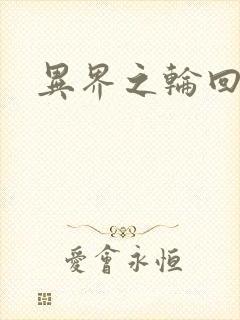 異界之輪回
愛會永恒